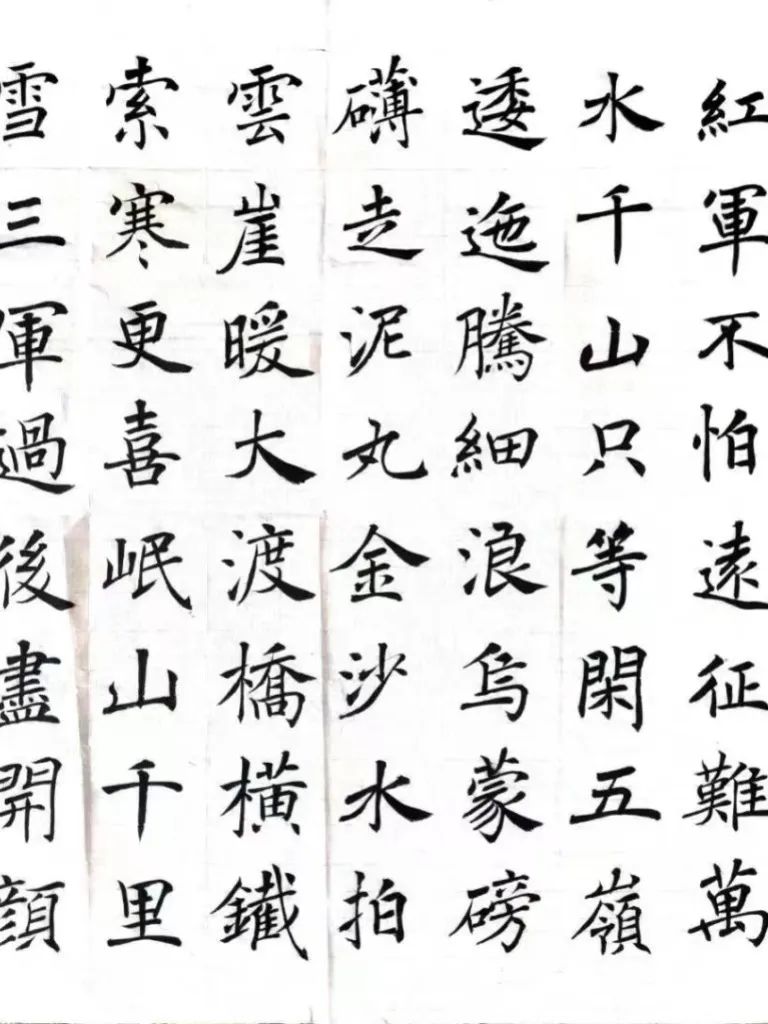 紅軍不怕遠征難萬
水千山只等閑五嶺
逶迤騰細浪烏蒙磅
礴走泥丸金沙水拍
雲崖暖大渡橋橫鐵
索寒更喜岷山千里
雪三軍過後盡開顔